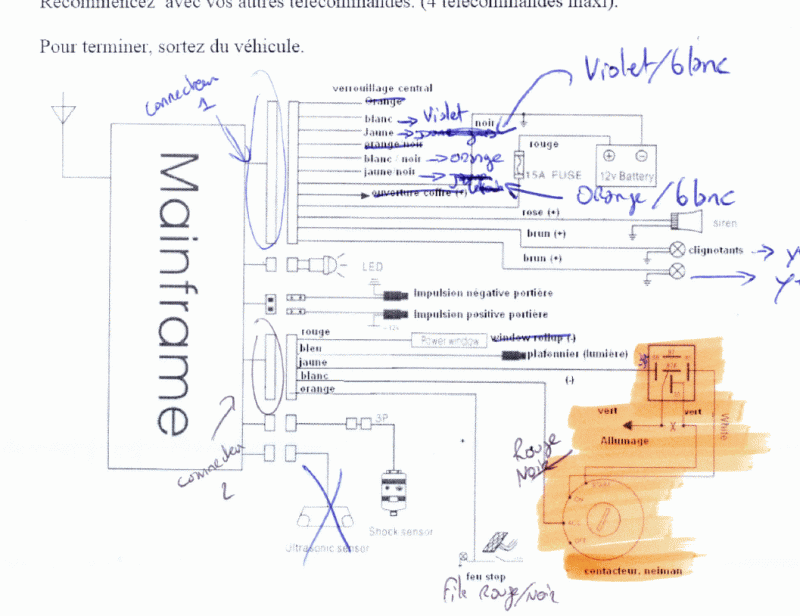 Recommencez avec vos autres télécommandes. (4 télécommandes maxi).
Pour terminer, sortez du véhicule.
connecteur 1
Violet/blanc
verrouillage central
Orange
blanc → Violet
noir
Jaune →
orange noir
rouge
blanc / noir → orange
jaune noir →
15A FUSE
12v Battery
ouverture coffre (+)
Orange/blanc
rose (+)
siren
brun (+)
clignotants
brun (+)
LED
Mainframe
Impulsion négative portière
Impulsion positive portière
+12v
rouge
Power window
window rollup (-)
bleu
plafonnier (lumière)
jaune
blanc
(-)
orange
vert
vert
White
Allumage
X
Rouge
Noir
3P
connecteur 2
START
ON
ACC
OFF
Shock sensor
Ultrasonic sensor
feu stop
contacteur. neiman
File Rouge/Noir